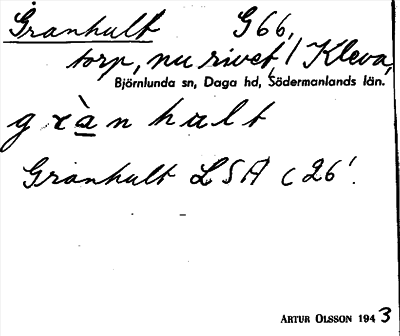 Granhult G66,
torp, nu rivet, / Kleva,
Björnlunda sn, Daga hd, Södermanlands län.
gràn hult
Granhult LSA c 26'.
ARTUR OLSSON 1943